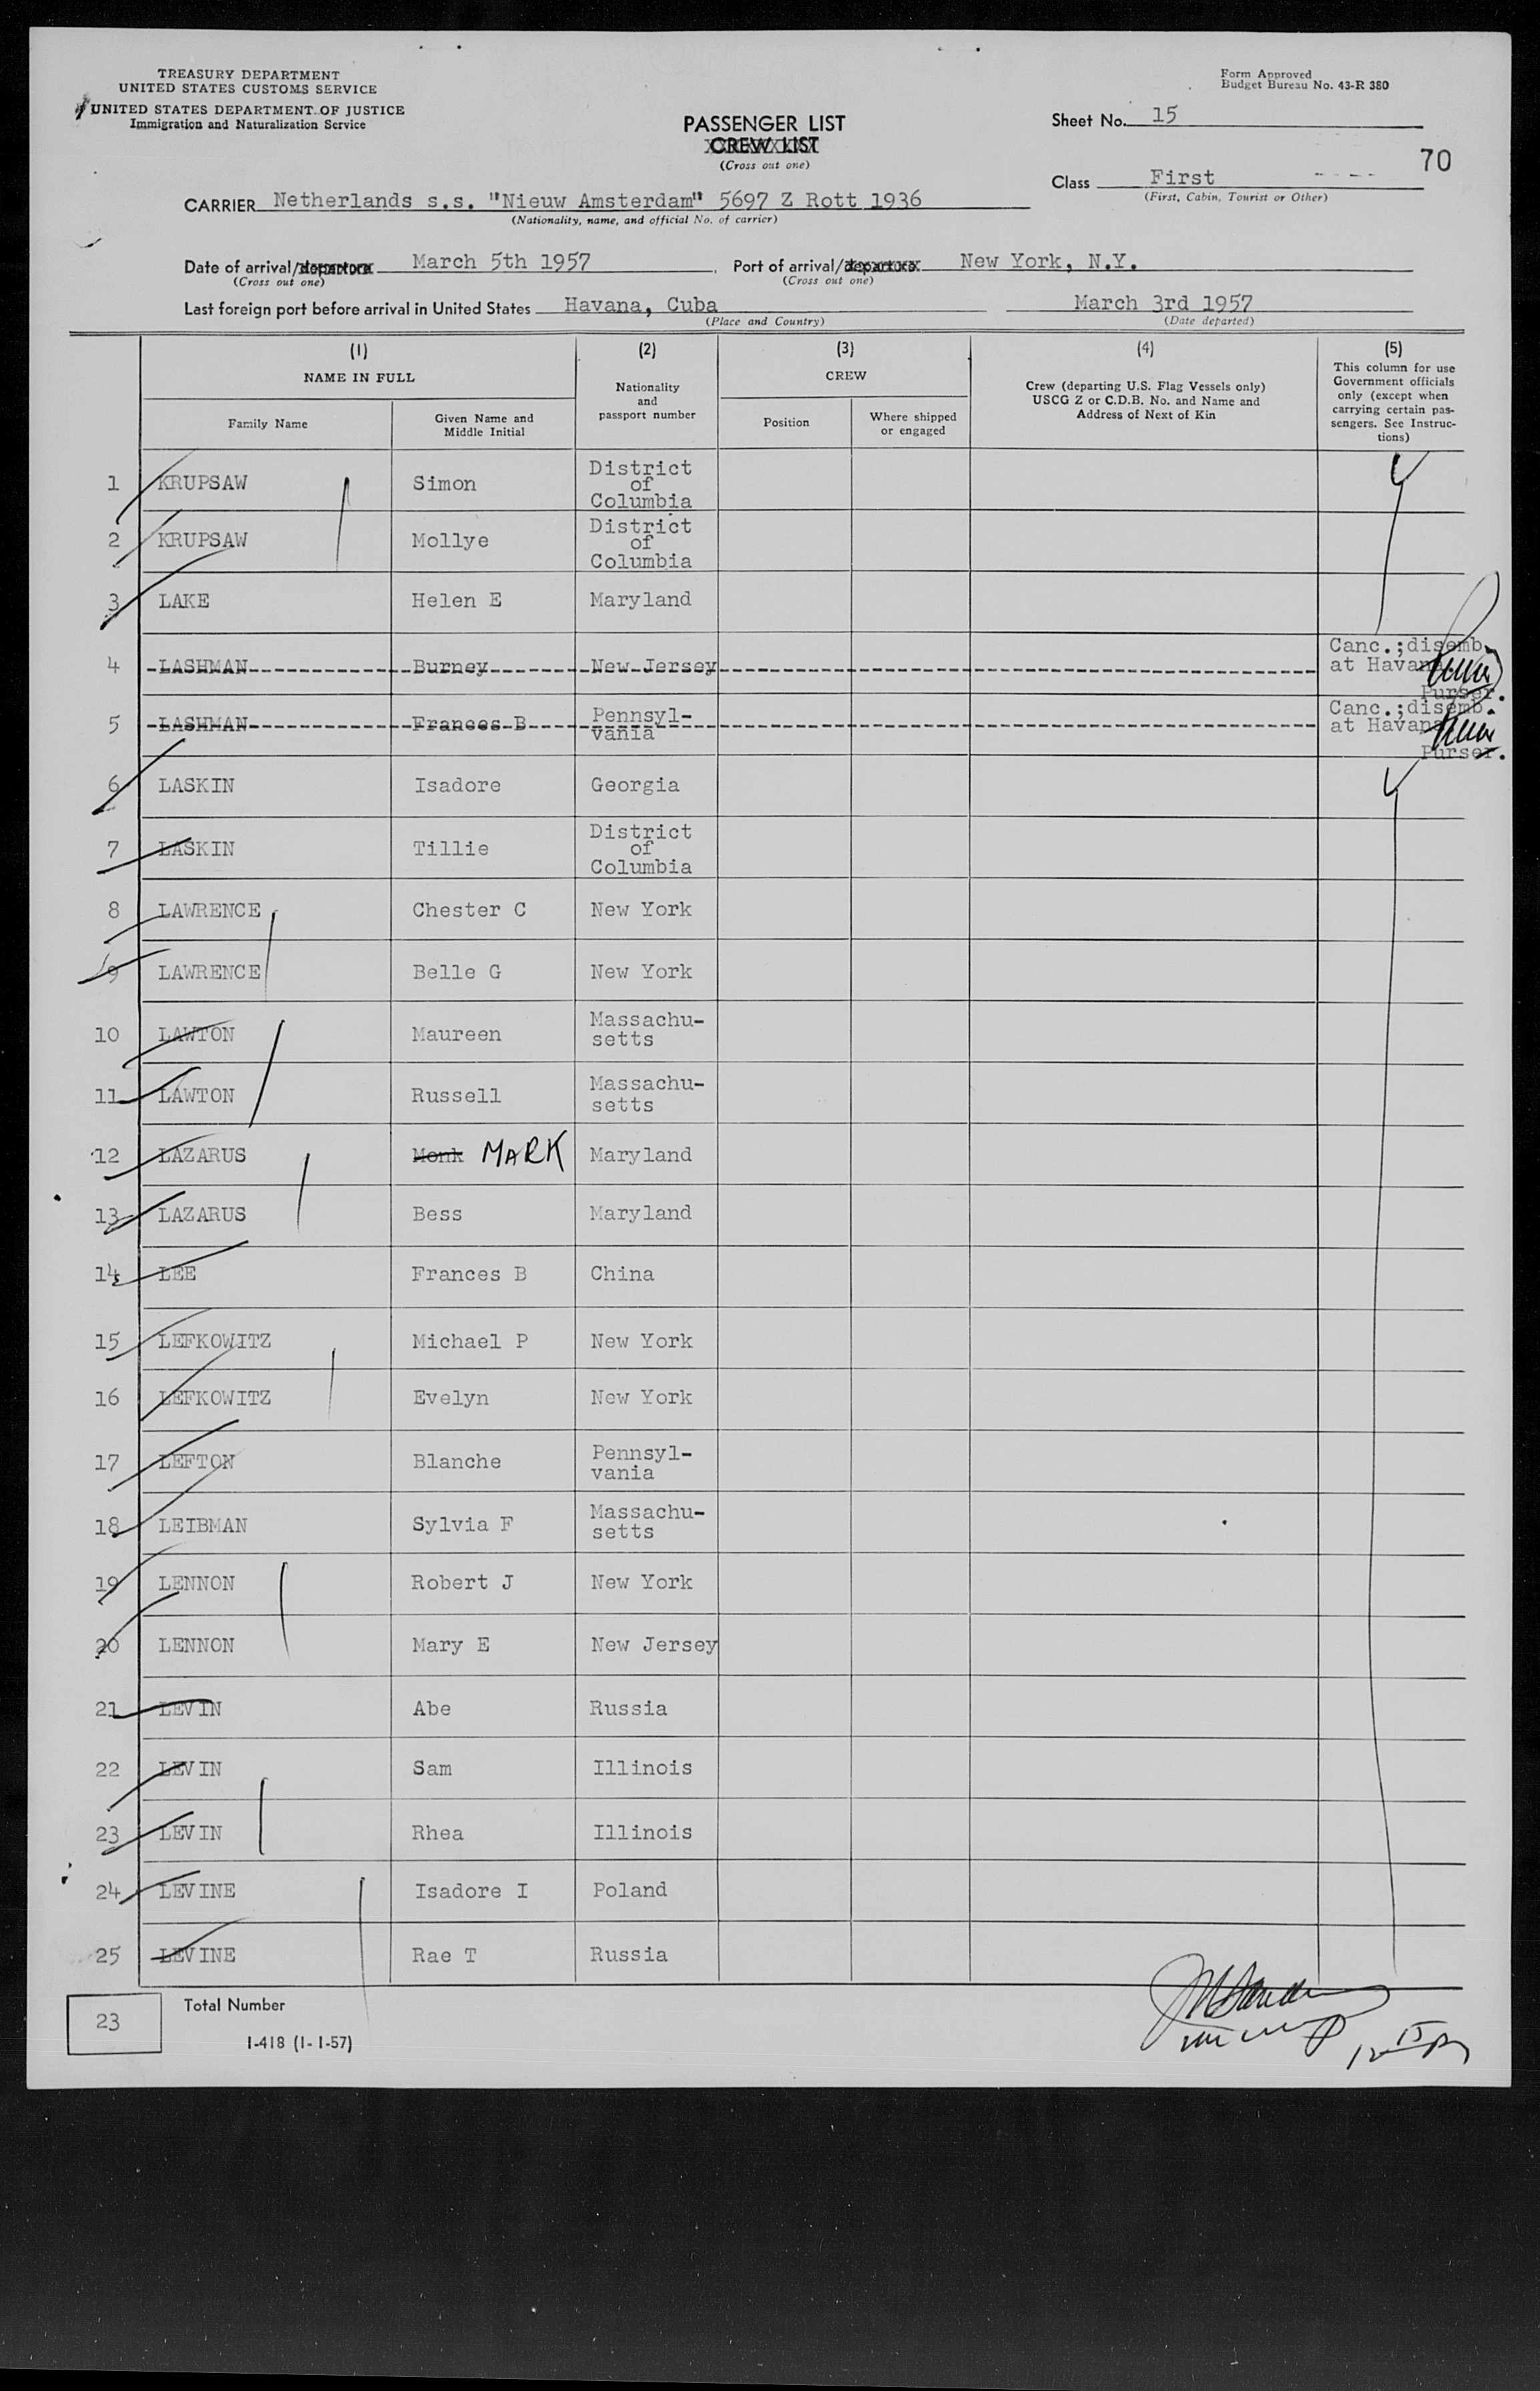 TREASURY DEPARTMENT
UNITED STATES CUSTOMS SERVICE
UNITED STATES DEPARTMENT OF JUSTICE
Immigration and Naturalization Service
Form Approved
Budget Bureau No. 43-R 380
PASSENGER LIST
CREW LIST
(Cross out one)
Sheet No. 15
70
Class First
(First, Cabin, Tourist or Other)
CARRIER Netherlands s.s. "Nieuw Amsterdam" 5697 Z Rott 1936
(Nationality, name, and official No. of carrier)
Date of arrival/departure March 5th 1957, Port of arrival/departure New York, N.Y.
(Cross out one) (Cross out one)
Last foreign port before arrival in United States Havana, Cuba March 3rd 1957
(Place and Country) (Date departed)
(1) (2) (3) (4) (5)
NAME IN FULL
Family Name
Given Name and
Middle Initial
Nationality
and
passport number
CREW
Position
Where shipped
or engaged
Crew (departing U.S. Flag Vessels only)
USCG Z or C.D.B. No. and Name and
Address of Next of Kin
This column for use
Government officials
only (except when
carrying certain pas-
sengers. See Instruc-
tions)
1 KRUPSAW Simon District of Columbia
2 KRUPSAW Mollye District of Columbia
3 LAKE Helen E Maryland
4 LASHMAN Burney New Jersey Canc.; disemb. at Havana Purser.
5 LASHMAN Frances B Pennsyl-vania Canc.; disemb. at Havana Purser.
6 LASKIN Isadore Georgia
7 LASKIN Tillie District of Columbia
8 LAWRENCE Chester C New York
9 LAWRENCE Belle G New York
10 LAWTON Maureen Massachu-setts
11 LAWTON Russell Massachu-setts
12 LAZARUS Monk MARK Maryland
13 LAZARUS Bess Maryland
14 LEE Frances B China
15 LEFKOWITZ Michael P New York
16 LEFKOWITZ Evelyn New York
17 LEFTON Blanche Pennsyl-vania
18 LEIBMAN Sylvia F Massachu-setts
19 LENNON Robert J New York
20 LENNON Mary E New Jersey
21 LEVIN Abe Russia
22 LEVIN Sam Illinois
23 LEVIN Rhea Illinois
24 LEVINE Isadore I Poland
25 LEVINE Rae T Russia
23 Total Number
I-418 (1-1-57)